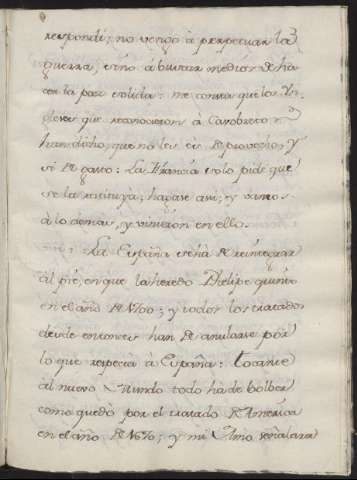 respondi; no vengo à perpetuar la
guerra, sino à buscar medios de ha-
cer la paz solida: me consta que los Yn-
gleses que reconocieron à Carobreto
han dicho, que no les es de provecho, y
si de gasto: La Francia solo pide que
se la restituyà; hagase asi, y vamos
à lo demas, y vinieron en ello.
La España se ha de reintegrar
al pie, en que la heredo Phelipe quinto
en el año de 1700; y todos los tratados
desde entonces han de anularse por
lo que respecta à España: tocante
al nuevo Mundo todo ha de bolber
como quedò por el tratado de America
en el año de 1670; y mi Amo señalara